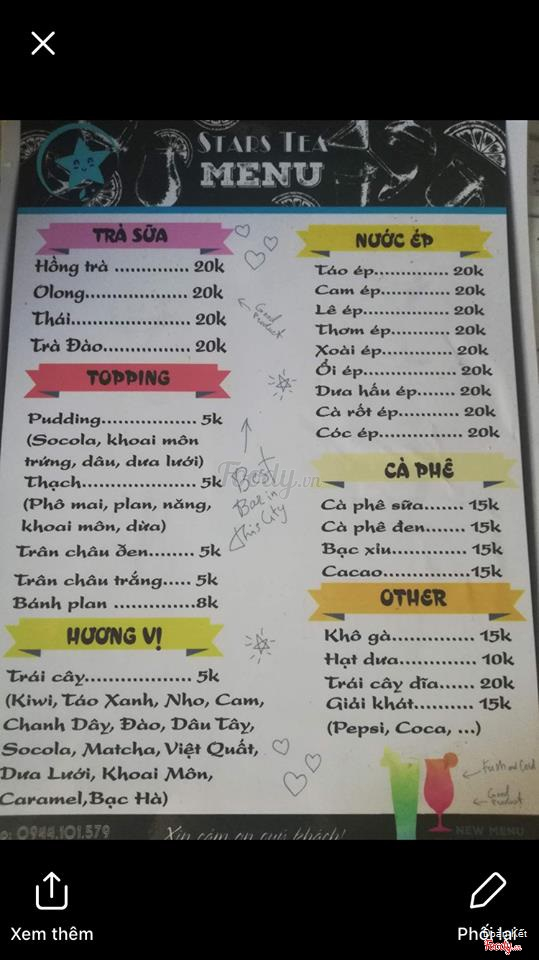 STARS TEA
MENU
TRÀ SỮA
Hồng trà ............... 20k
Olong..................... 20k
Thái........................ 20k
Trà Đào................. 20k
TOPPING
Pudding................... 5k
(Socola, khoai môn
trứng, dâu, dưa lưới)
Thạch....................... 5k
(Phô mai, plan, năng,
khoai môn, dừa)
Trân châu đen........ 5k
Trân châu trắng..... 5k
Bánh plan ..............8k
HƯƠNG VỊ
Trái cây..................... 5k
(Kiwi, Táo Xanh, Nho, Cam,
Chanh Dây, Đào, Dâu Tây,
Socola, Matcha, Việt Quất,
Dưa Lưới, Khoai Môn,
Caramel,Bạc Hà)
Good
Product
Best
Bar in
this City
Foody.vn
NƯỚC ÉP
Táo ép............... 20k
Cam ép............... 20k
Lê ép.................. 20k
Thơm ép............. 20k
Xoài ép............... 20k
Ổi ép................... 20k
Dưa hấu ép........ 20k
Cà rốt ép............ 20k
Cóc ép................. 20k
CÀ PHÊ
Cà phê sữa....... 15k
Cà phê đen....... 15k
Bạc xỉu............... 15k
Cacao.................15k
OTHER
Khô gà.............. 15k
Hạt dưa............. 10k
Trái cây dĩa...... 20k
Giải khát........... 15k
(Pepsi, Coca, ...)
Good
Product
0944.101.579
Xin cảm ơn quý khách!
NEW MENU
Xem thêm
Phối lại
Foody.vn